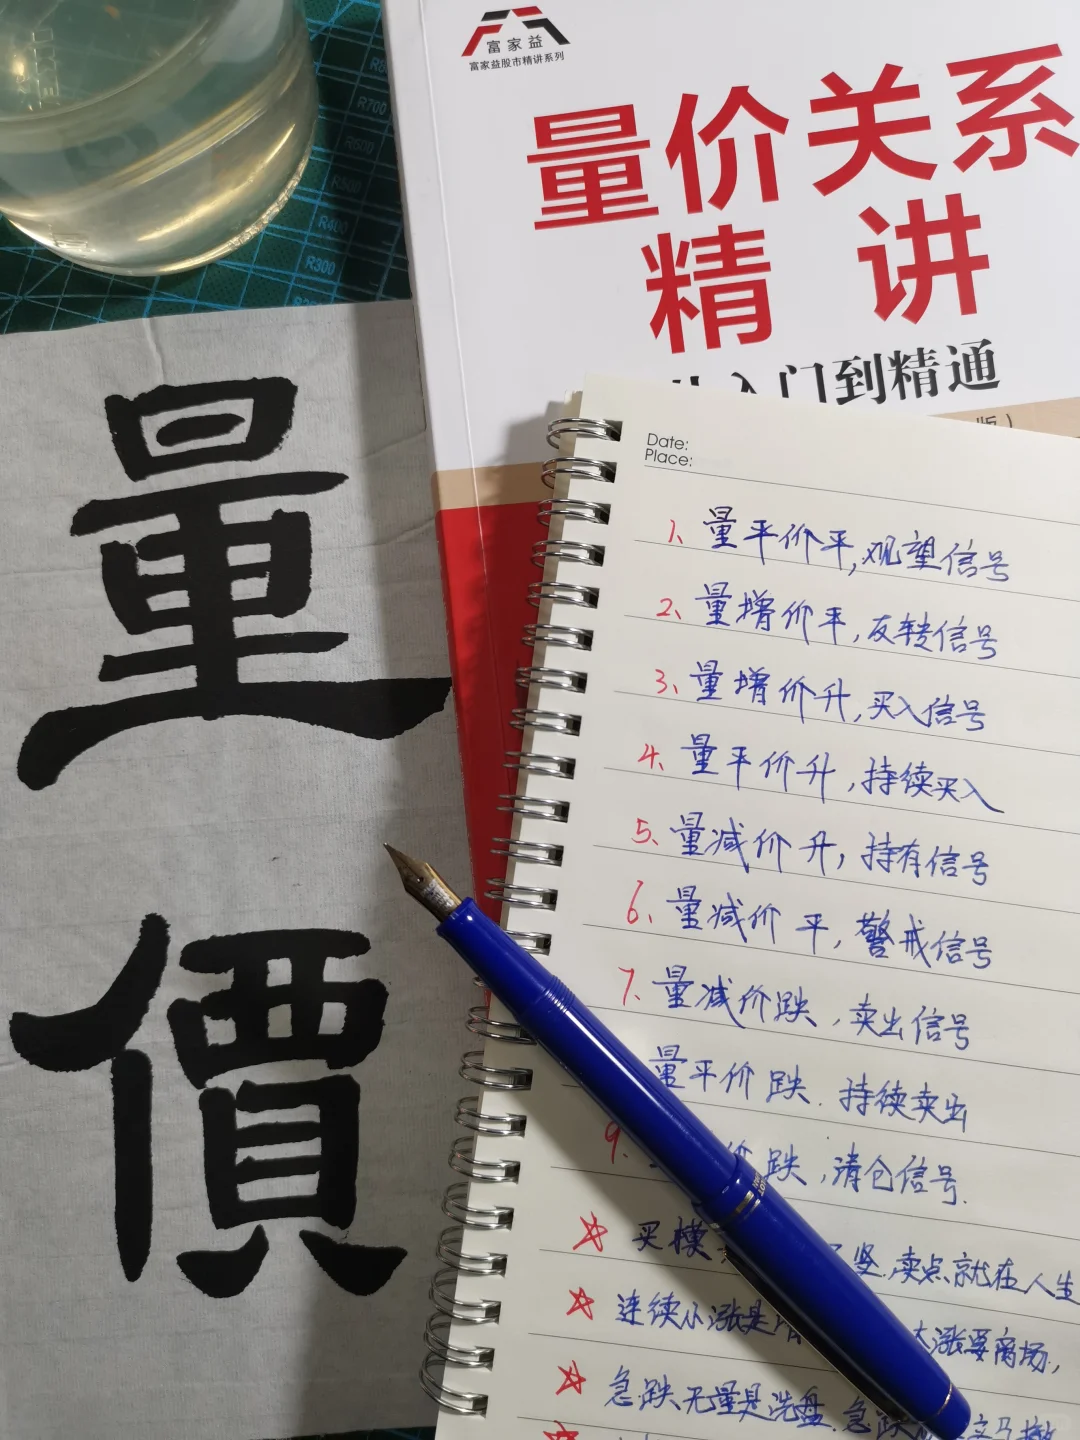 富家益
富家益股市精讲系列
量价关系
精讲
入门到精通
版）
R700
R500
R400
R300
量
價
Date:
Place:
1、量平价平,观望信号
2、量增价平,反转信号
3、量增价升,买入信号
4、量平价升,持续买入
5、量减价升,持有信号
6、量减价平,警戒信号
7、量减价跌,卖出信号
量平价跌.持续卖出
9、价跌,清仓信号.
买横 竖.卖点就在人生
连续小涨是 大涨要离场,
急跌无量是洗盘.急跌